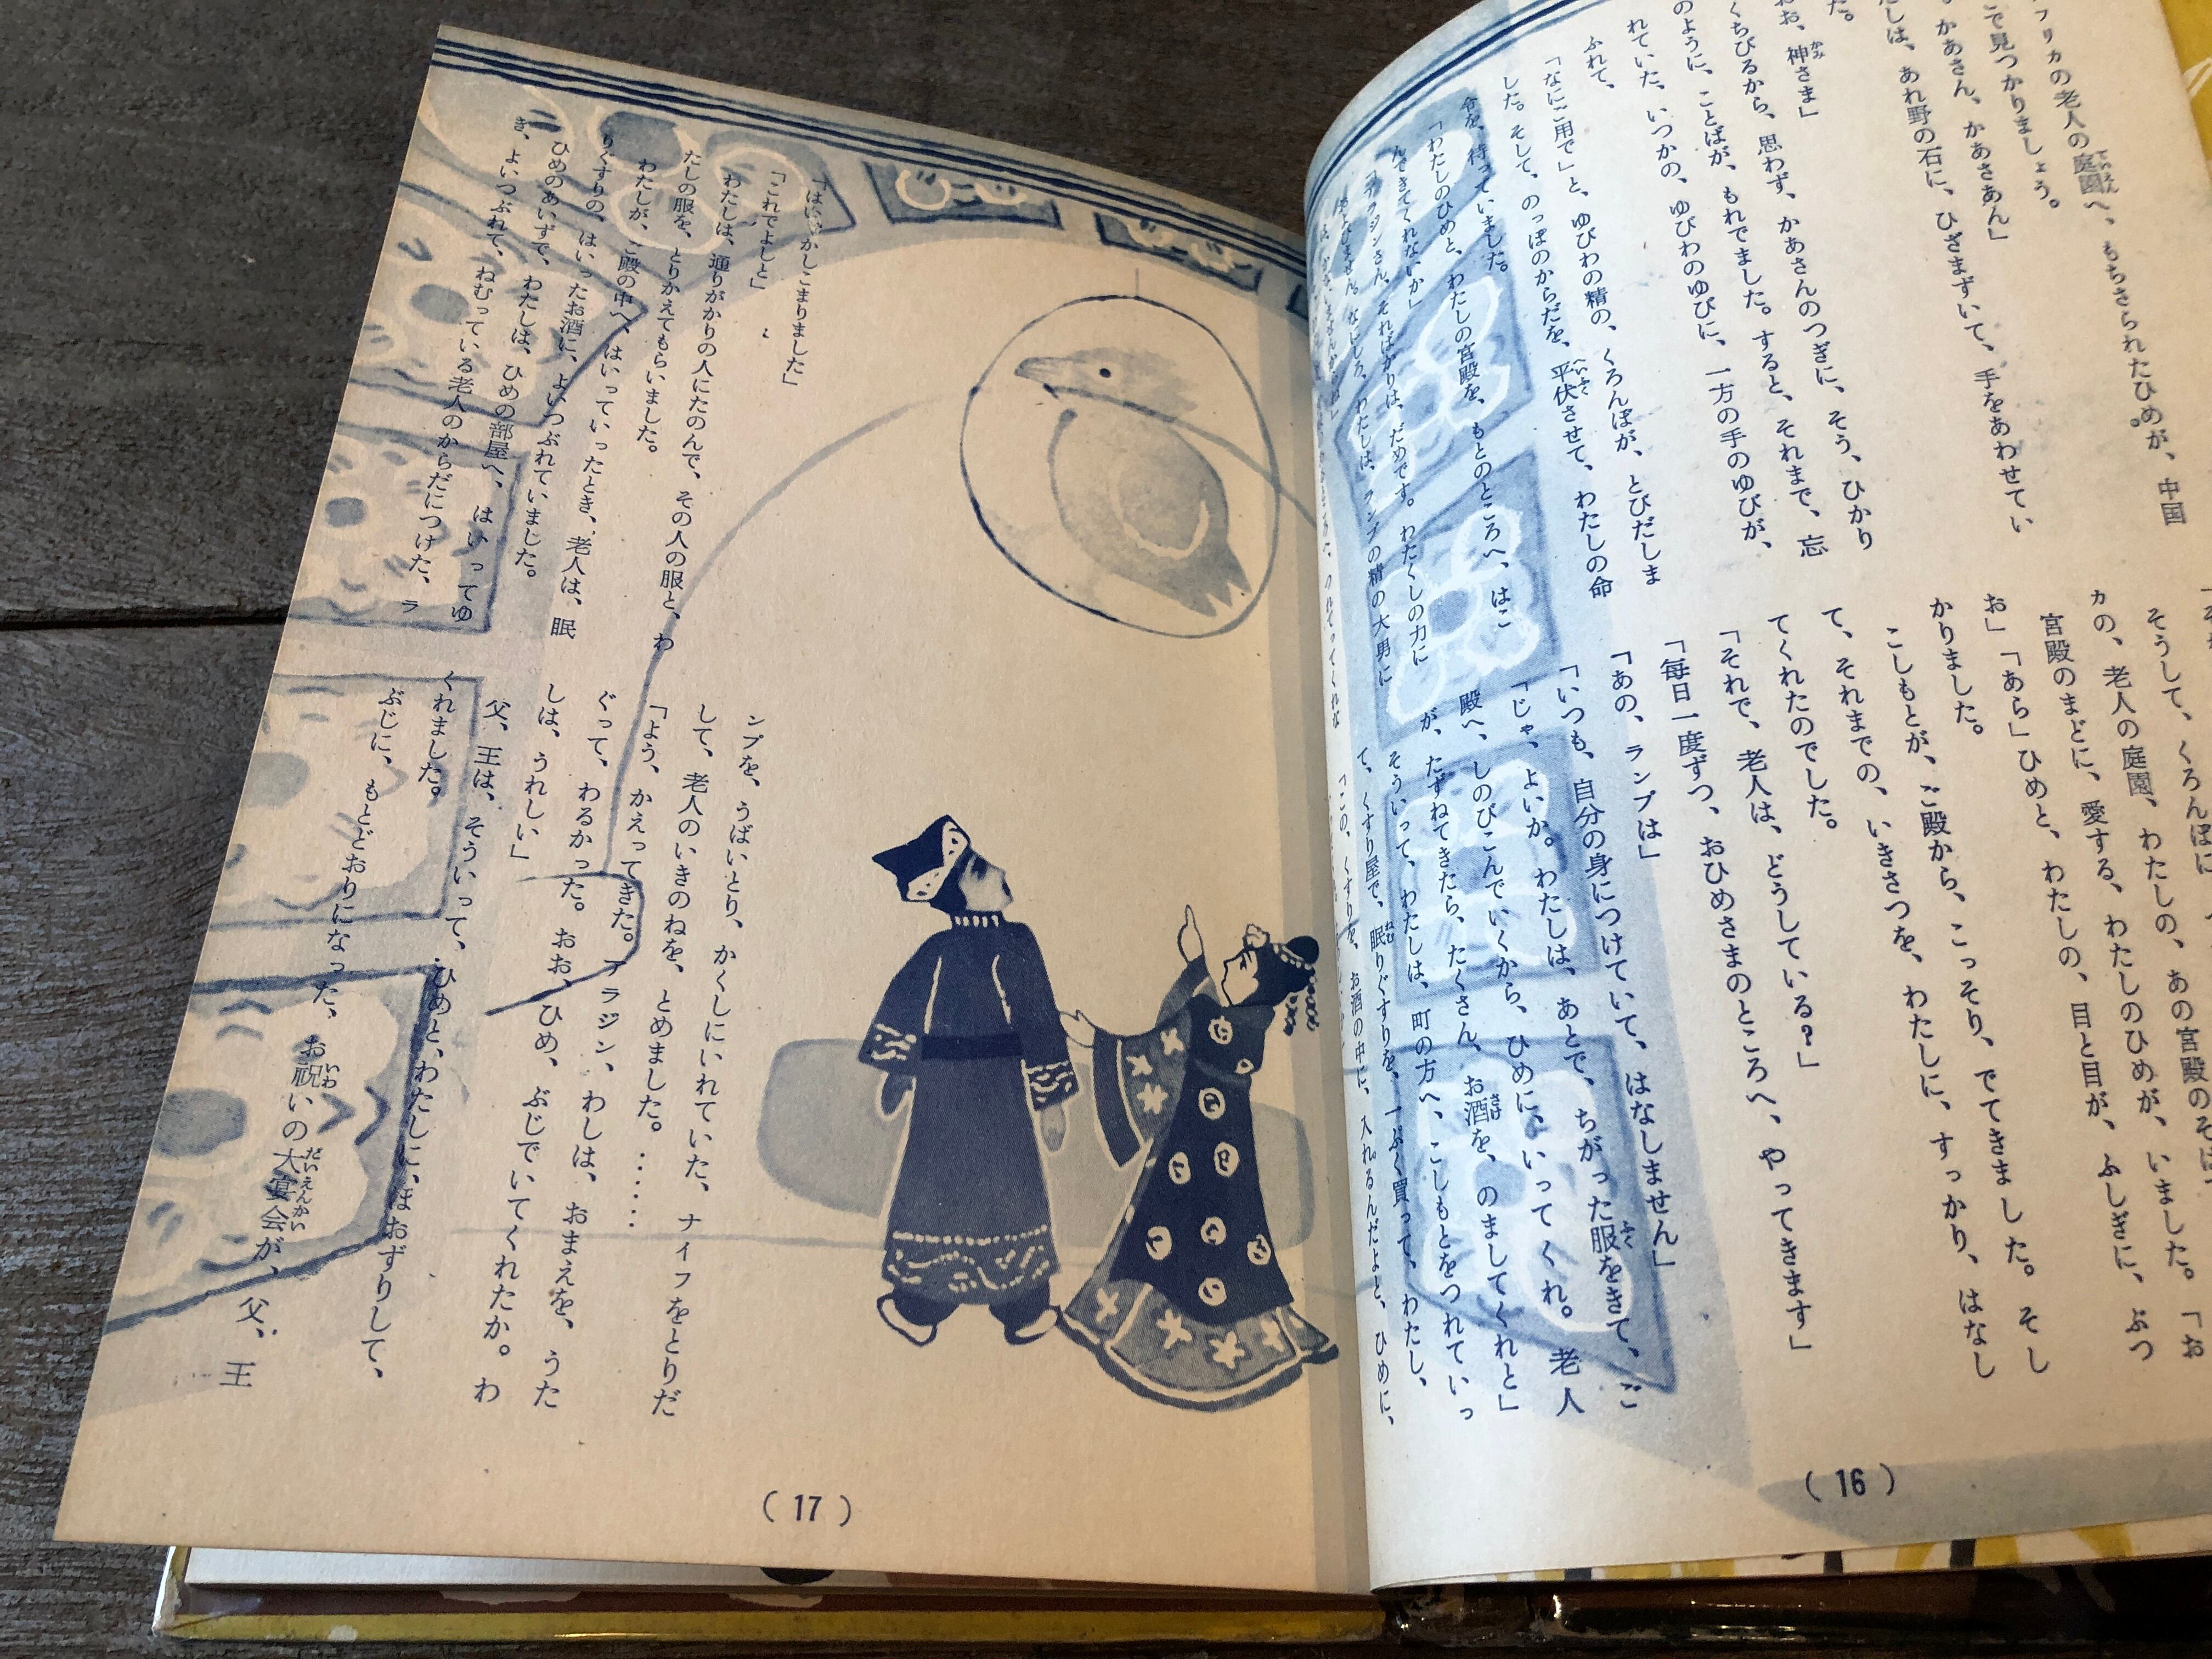 フリカの老人の庭園へ、もちさられたひめが、中国
こで見つかりましょう。
かあさん、かあさあん」
しは、あれ野の石に、ひざまずいて、手をあわせてい
た。
お、神さま」
くちびるから、思わず、かあさんのつぎに、そう、ひかり
のように、ことばが、もれでました。すると、それまで、忘
れていた、いつかの、ゆびわのゆびに、一方の手のゆびが、
ふれて、
「なにご用で」と、ゆびわの精の、くろんぼが、とびだしま
した。そして、のっぽのからだを、平伏させて、わたしの命
令を、待っていました。
「わたしのひめと、わたしの宮殿を、もとのところへ、はこ
んできてくれないか」
「アラジンさん、そればかりは、だめです。わたくしの力に
わたしは、ランプの精の大男に
そうして、くろんぼに
カの、老人の庭園、わたしの、あの宮殿のそばで
宮殿のまどに、愛する、わたしのひめが、いました。「お
お」「あら」ひめと、わたしの、目と目が、ふしぎに、ぶつ
かりました。
こしもとが、ご殿から、こっそり、でてきました。そし
て、それまでの、いきさつを、わたしに、すっかり、はなし
てくれたのでした。
「それで、老人は、どうしている?」
「毎日一度ずつ、おひめさまのところへ、やってきます」
「あの、ランプは」
「いつも、自分の身につけていて、はなしません」
「じゃ、よいか。わたしは、あとで、ちがった服をきて、ご
殿へ、しのびこんでいくから、ひめに、いってくれ。老人
が、たずねてきたら、たくさん、お酒を、のましてくれと」
そういって、わたしは、町の方へ、こしもとをつれていっ
て、くすり屋で、眠りぐすりを、一ぷく買って、わたし、
「この、くすりを、お酒の中に、入れるんだよと、ひめに、
(16)
「はい、かしこまりました」
「これでよしと」
わたしは、通りがかりの人にたのんで、その人の服と、わ
たしの服を、とりかえてもらいました。
わたしが、ご殿の中へ、はいっていったとき、老人は、眠
りぐすりの、はいったお酒に、よいつぶれていました。
ひめのあいずで、わたしは、ひめの部屋へ、はいってゆ
き、よいつぶれて、ねむっている老人のからだにつけた、ラ
ンプを、うばいとり、かくしにいれていた、ナイフをとりだ
して、老人のいきのねを、とめました。……
「よう、かえってきた。アラジン、わしは、おまえを、うた
ぐって、わるかった。おお、ひめ、ぶじでいてくれたか。わ
しは、うれしい」
父、王は、そういって、ひめと、わたしに、ほおずりして、
くれました。
ぶじに、もとどおりになった、お祝いの大宴会が、父、王
(17)